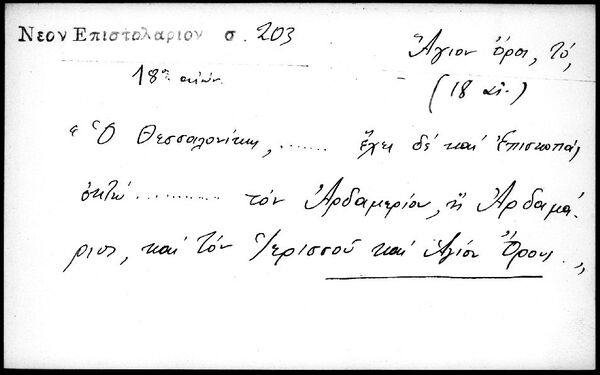 Νεον Επιστολαριον σ. 203
Ἅγιον Ὄρος, τό,
18ος αἰών.
(18 αἰ.)
"Ὁ Θεσσαλονίκης, ...... ἔχει δέ καί Ἐπισκοπάς
ὀκτώ .......... τόν Ἀρδαμερίου, ἤ Ἀρδαμά-
ριου, καί τόν Ἱερισσοῦ καί Ἁγίου Ὄρους..,,